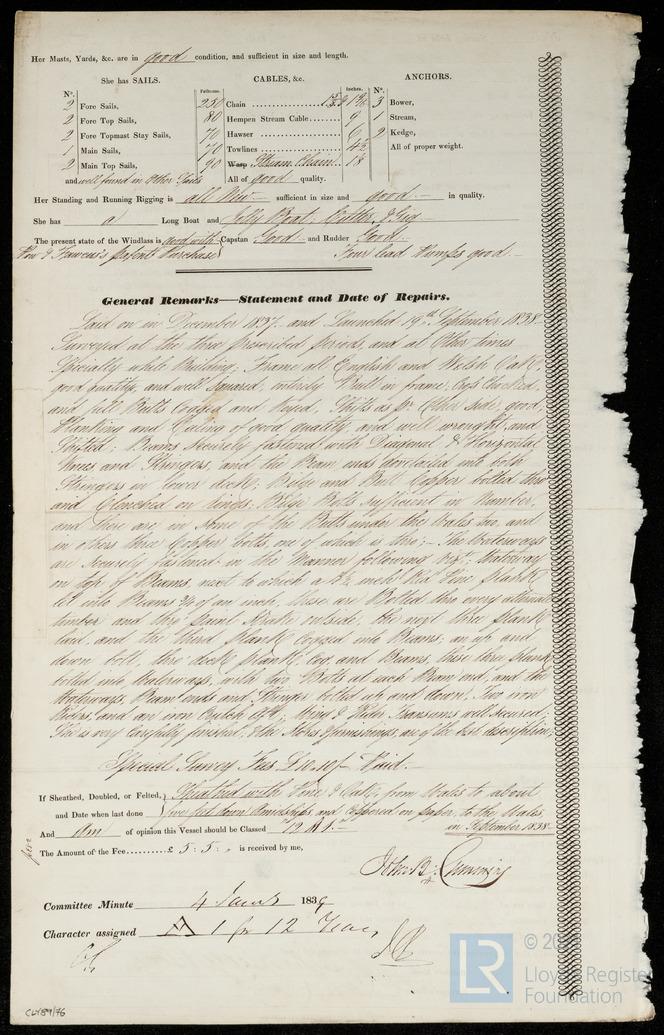 Her Masts, Yards, &c. are in good condition, and sufficient in size and length.
She has SAILS. CABLES, &c. ANCHORS.
N°. Fathoms. Inches. N°.
2 Fore Sails, 250 Chain 3 Bower,
2 Fore Top Sails, 80 Hempen Stream Cable 9 1 Stream,
2 Fore Topmast Stay Sails, 70 Hawser 6 2 Kedge,
1 Main Sails, 70 Towlines All of proper weight.
2 Main Top Sails, 90 Warp Stream Chain
and well found in Other Sails All of good quality.
Her Standing and Running Rigging is all New sufficient in size and good in quality.
She has a Long Boat and Jolly Boat, Cutter, & Gig
The present state of the Windlass is good with Capstan Good and Rudder Good
Patent Purchase Four lead Pumps good
General Remarks—Statement and Date of Repairs.
Laid on in December 1837 and Launched 19th September 1838
Surveyed at the three prescribed periods, and at Other times
Specially while Building; Frame all English and Welsh Oak,
good quality, and well squared, entirely Built in frame,
and full Butts and keyed, Shifts as pr Other side, good,
Planking and Ceiling of good quality and well wrought, and
Shifted: Beams Securely fastened with Diagonal & Horizontal
Knees and Stringers, and the Beam ends dovetailed into both
Stringers in lower deck; Bilge and Butt Copper bolted thro
and Clenched on Rings; Bilge Bolts sufficient in Number,
and there are in some of the Butts under the Wales two, and
in others three Copper bolts, one of which is thro; The Waterways
are Securely fastened in the Manner following Vizt: Waterway
on top of Beams, next to which a inch Red Pine plank
let into Beams 3/4 of an inch, these are Bolted thro every alternate
timber and thro paint Strake outside, the next three planks
laid, and the third plank cogged into Beams; an up and
down bolt, thro deck plank, and Beams, these three planks
bolted into Waterways, with two Bolts at each Beam end, and the
Waterways, Beam ends and Stringer bolted up and down, Two iron
Riders, and an iron Crutch aft; Wing & Transoms well secured,
She is very carefully finished, & the Stores & furnishings, are of the best description,
Special Survey Fees £10.10/- Paid.
If Sheathed, Doubled, or Felted, Sheathed with Pine & Oak, from Wales to about
and Date when last done five feet down Amidships and Coppered on paper, to the Wales,
And am of opinion this Vessel should be Classed 12 A 1. in September 1838
The Amount of the Fee £ 5 : 5 : is received by me,
John B. Cumming
Committee Minute 4 Jany 1839
Character assigned A 1 for 12 Years
© Lloyd's Register
Foundation
LR